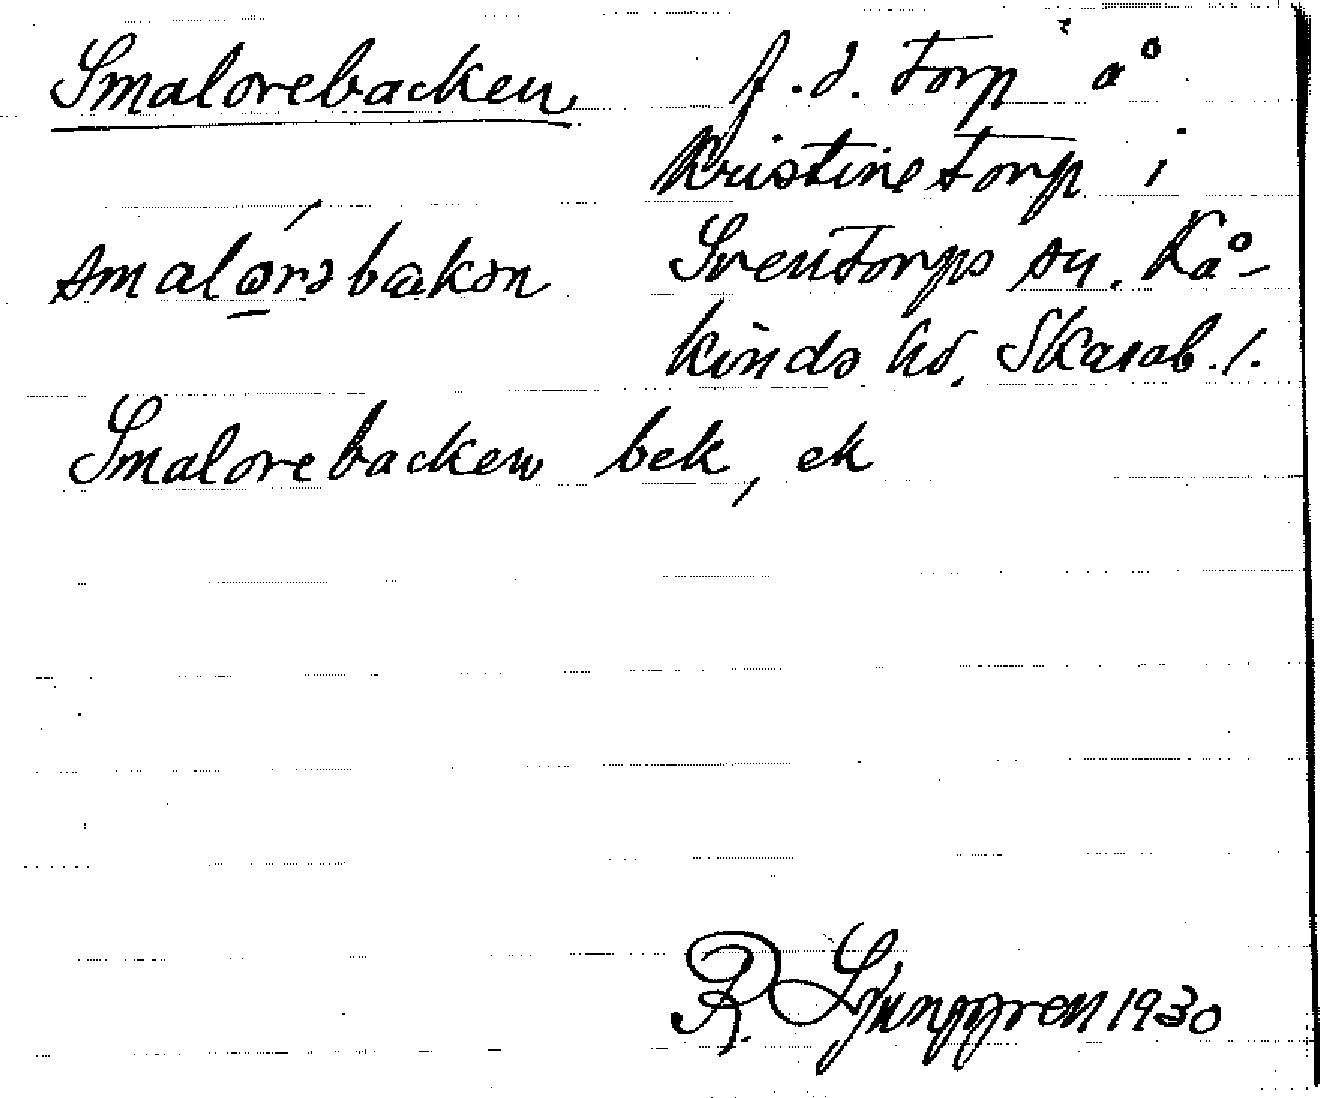 Smalorebacken
f.d. torp å
Kristinetorp i
Sventorps sn. Kå-
kinds hd. Skarab. l.
smalørəbakən
Smalorebacken bek, ek
R. Ljunggren 1930